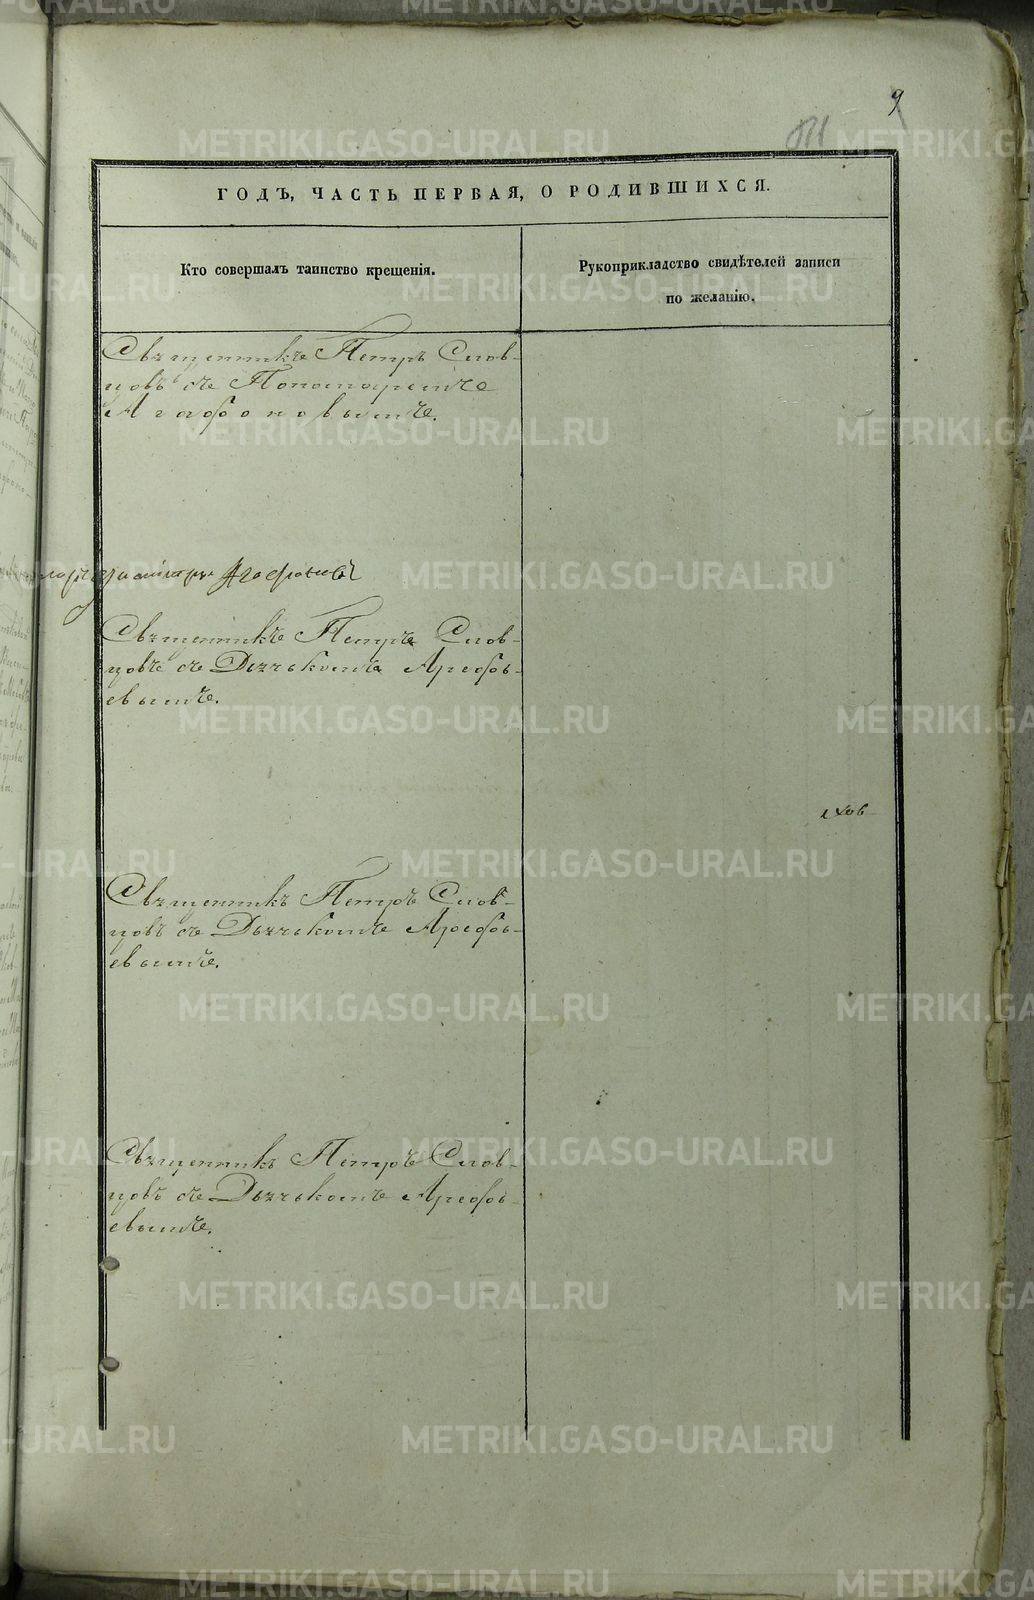 9
ГОДЪ, ЧАСТЬ ПЕРВАЯ, О РОДИВШИХСЯ.
Кто совершалъ таинство крещенія.
Рукоприкладство свидѣтелей записи
по желанію.
Священникъ Петръ Слов-
цовъ съ Пономаремъ
Агафоновымъ.
Агафоновъ
Священникъ Петръ Слов-
цовъ съ Дьячькомъ Арефь-
евымъ.
Священникъ Петръ Слов-
цовъ съ Дьячькомъ Арефь-
евымъ.
Священникъ Петръ Слов-
цовъ съ Дьячькомъ Арефь-
евымъ.
METRIKI.GASO-URAL.RU